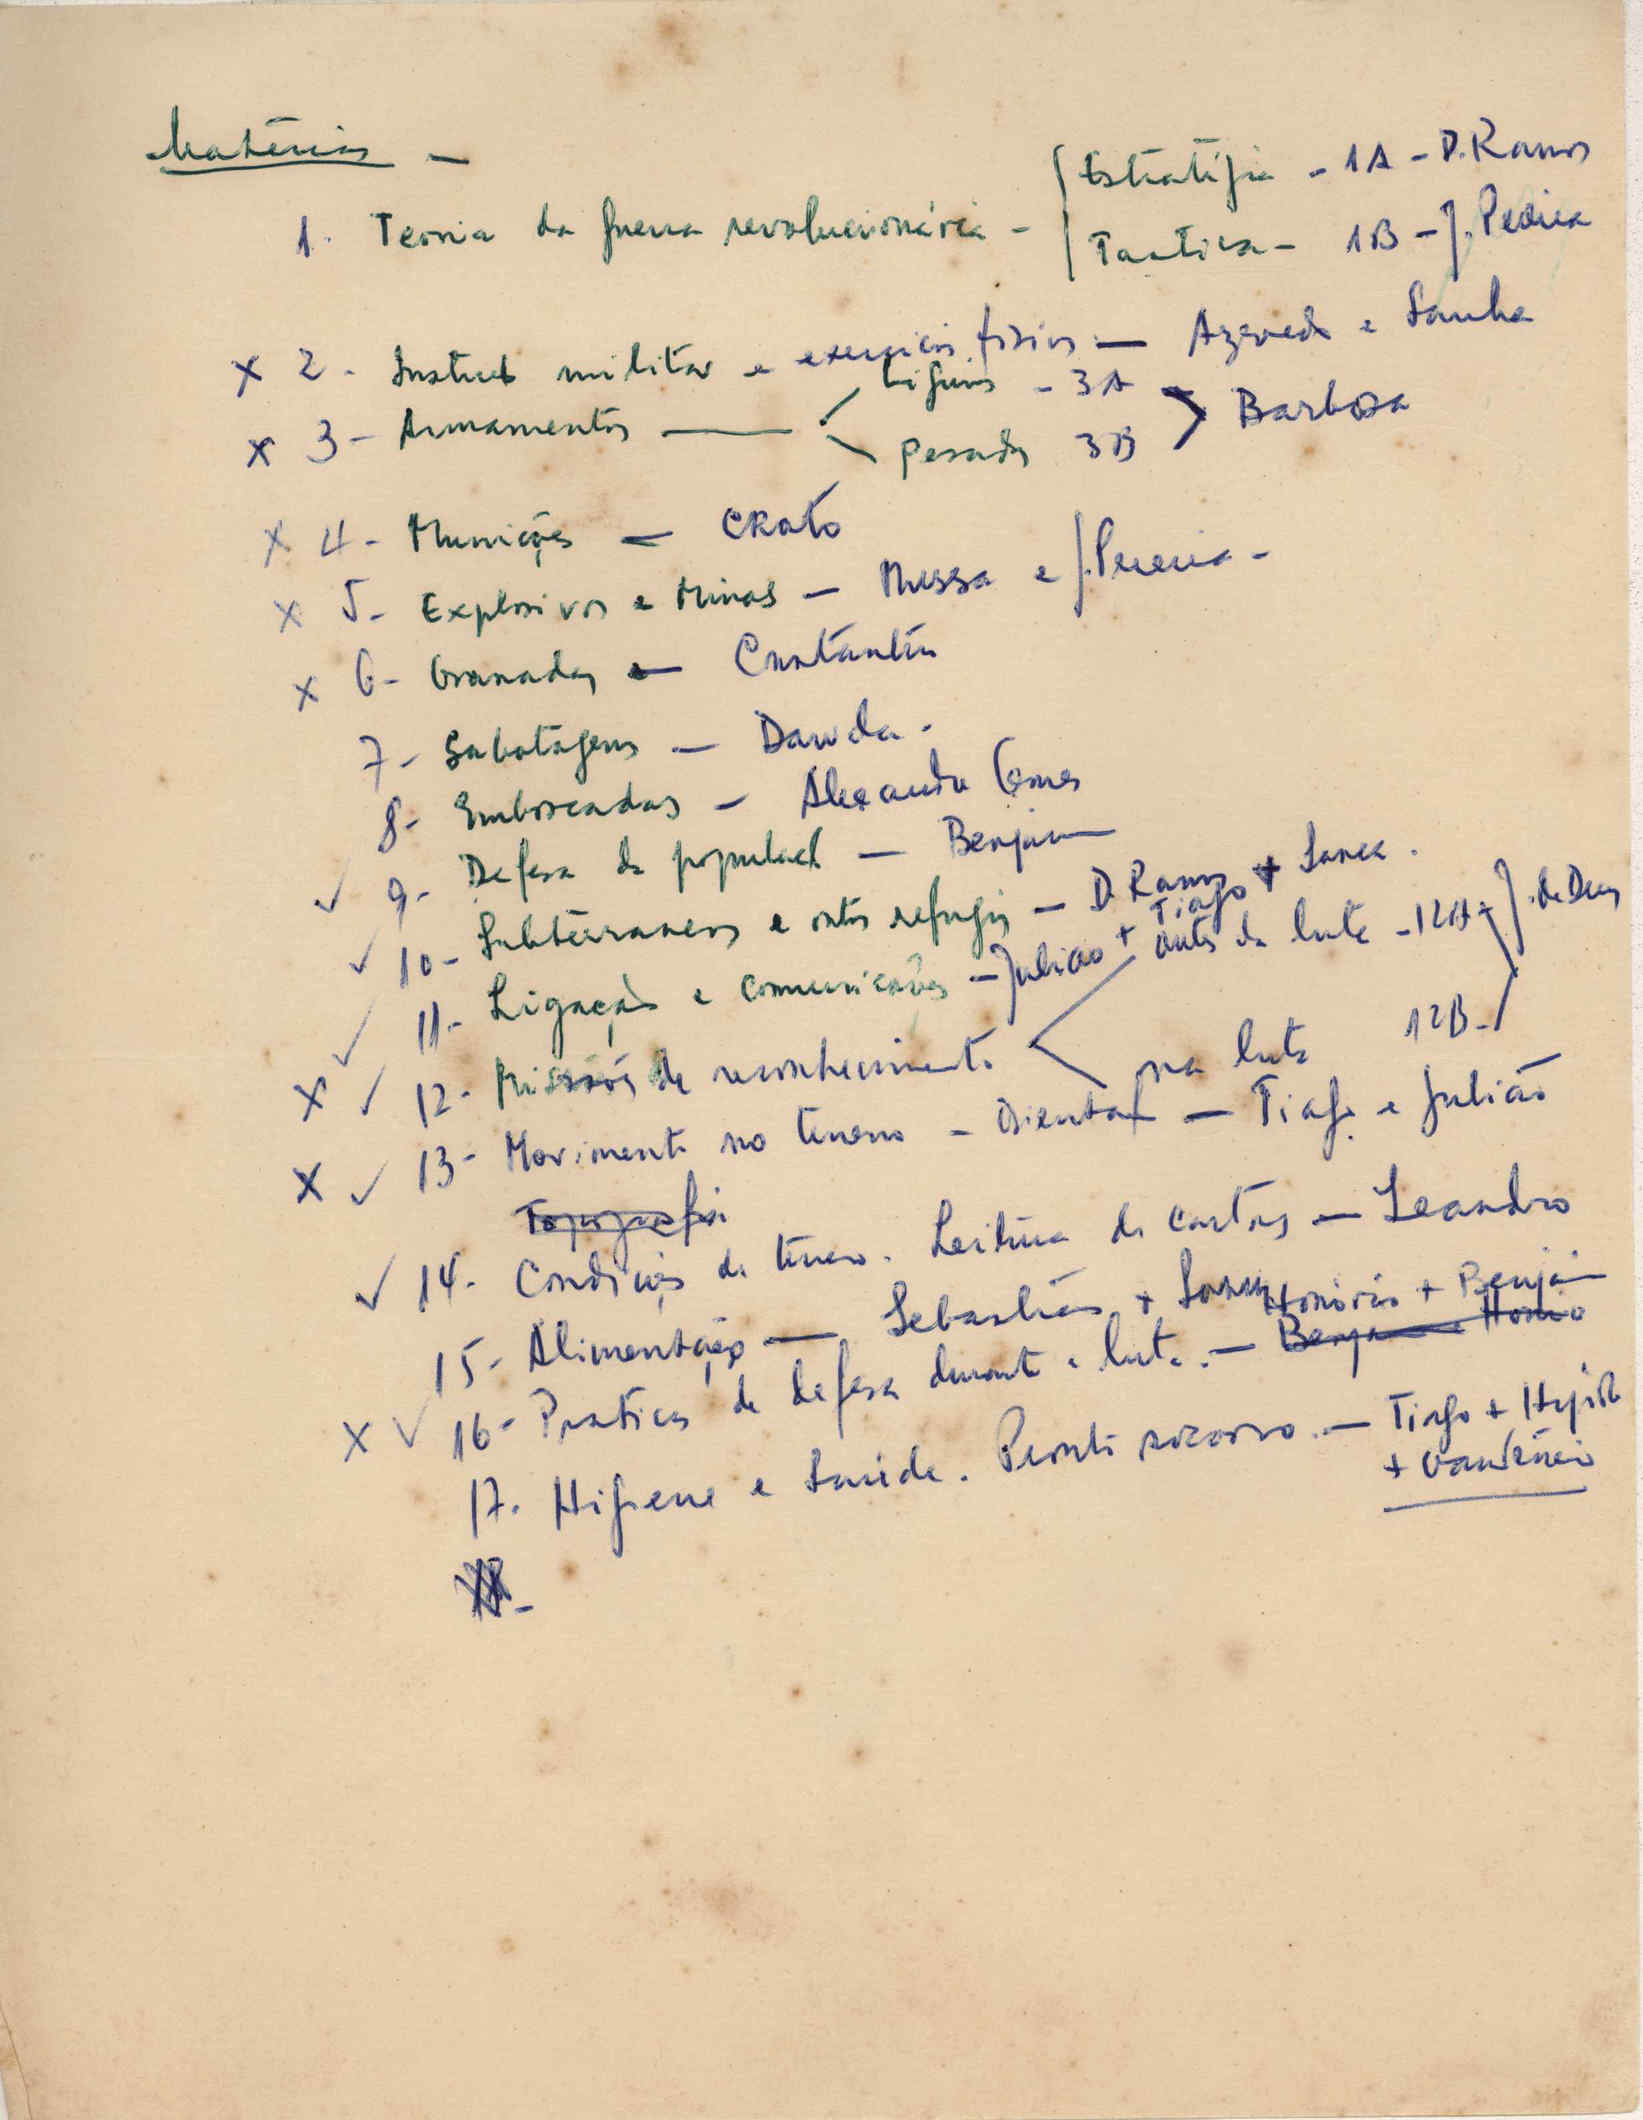 Matérias —
1. Teoria da guerra revolucionária - { Estratégia - 1A - D. Ramos
Tactica - 1B - J. Pereira
x 2 - Instrução militar e exercicios físicos — Azevedo e Sanha
x 3 - Armamentos — ligeiros - 3A
pesados 3B > Barbosa
x 4 - Munições — CRato
x 5 - Explosivos e Minas — Mussa e J. Pereira -
x 6 - Granadas — Constantin
7 - Sabotagens — Dauda.
8 - Emboscadas — Alexandre Gomes
✓ 9 - Defesa da população — Benjamin
✓ 10 - Subterraneos e outros refugios — D. Ramos + Sanca.
✓ 11 - Ligação e comunicações - Julião + Tiago
x ✓ 12 - Missões de reconhecimento < antes da luta - 12A - J. de Deus
na luta 12B -
x ✓ 13 - Movimento no terreno - Orientação — Tiago e Julião
Topografia
✓ 14 - Condições do terreno. Leitura de cartas — Leandro
15 - Alimentação — Sebastião +
x ✓ 16 - Praticas de defesa durante a luta. — Benjamin e Honório Honório + Benjamin
17. Higiene e Saúde. Pronto socorro. — Tiago +
+ Gaudêncio